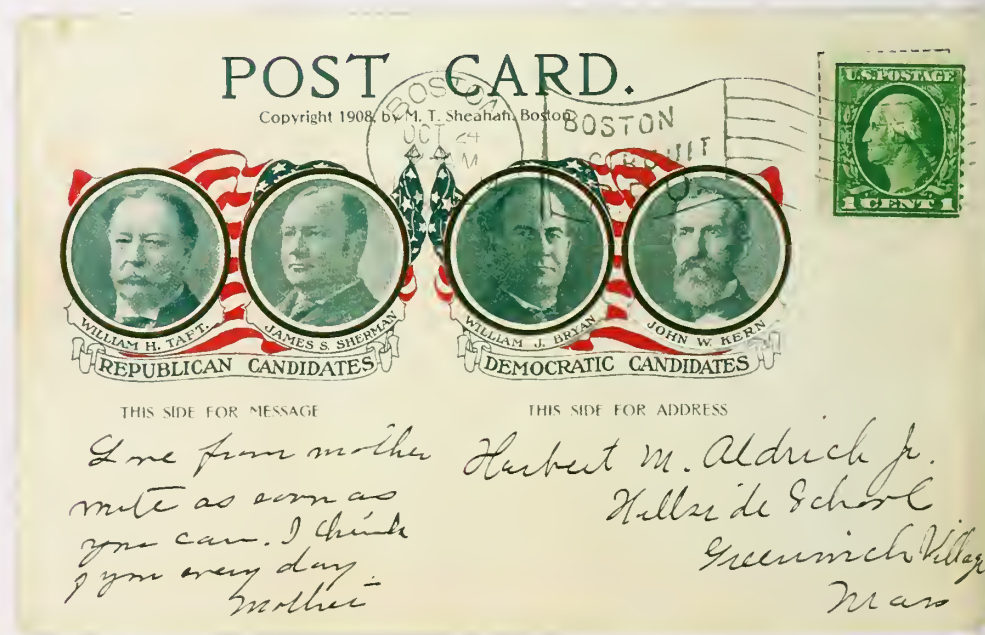 POST CARD.
Copyright 1908, by M. T. Sheahan, Boston
BOSTON
OCT 24
AM
BOSTON
U.S. POSTAGE
1 CENT 1
WILLIAM H. TAFT.
JAMES S. SHERMAN
REPUBLICAN CANDIDATES
WILLIAM J. BRYAN
JOHN W. KERN
DEMOCRATIC CANDIDATES
THIS SIDE FOR MESSAGE
Love from mother
write as soon as
you can. I think
of you every day.
Mother
THIS SIDE FOR ADDRESS
Herbert M. Aldrich Jr.
Hillside School
Greenwich Village
Mass